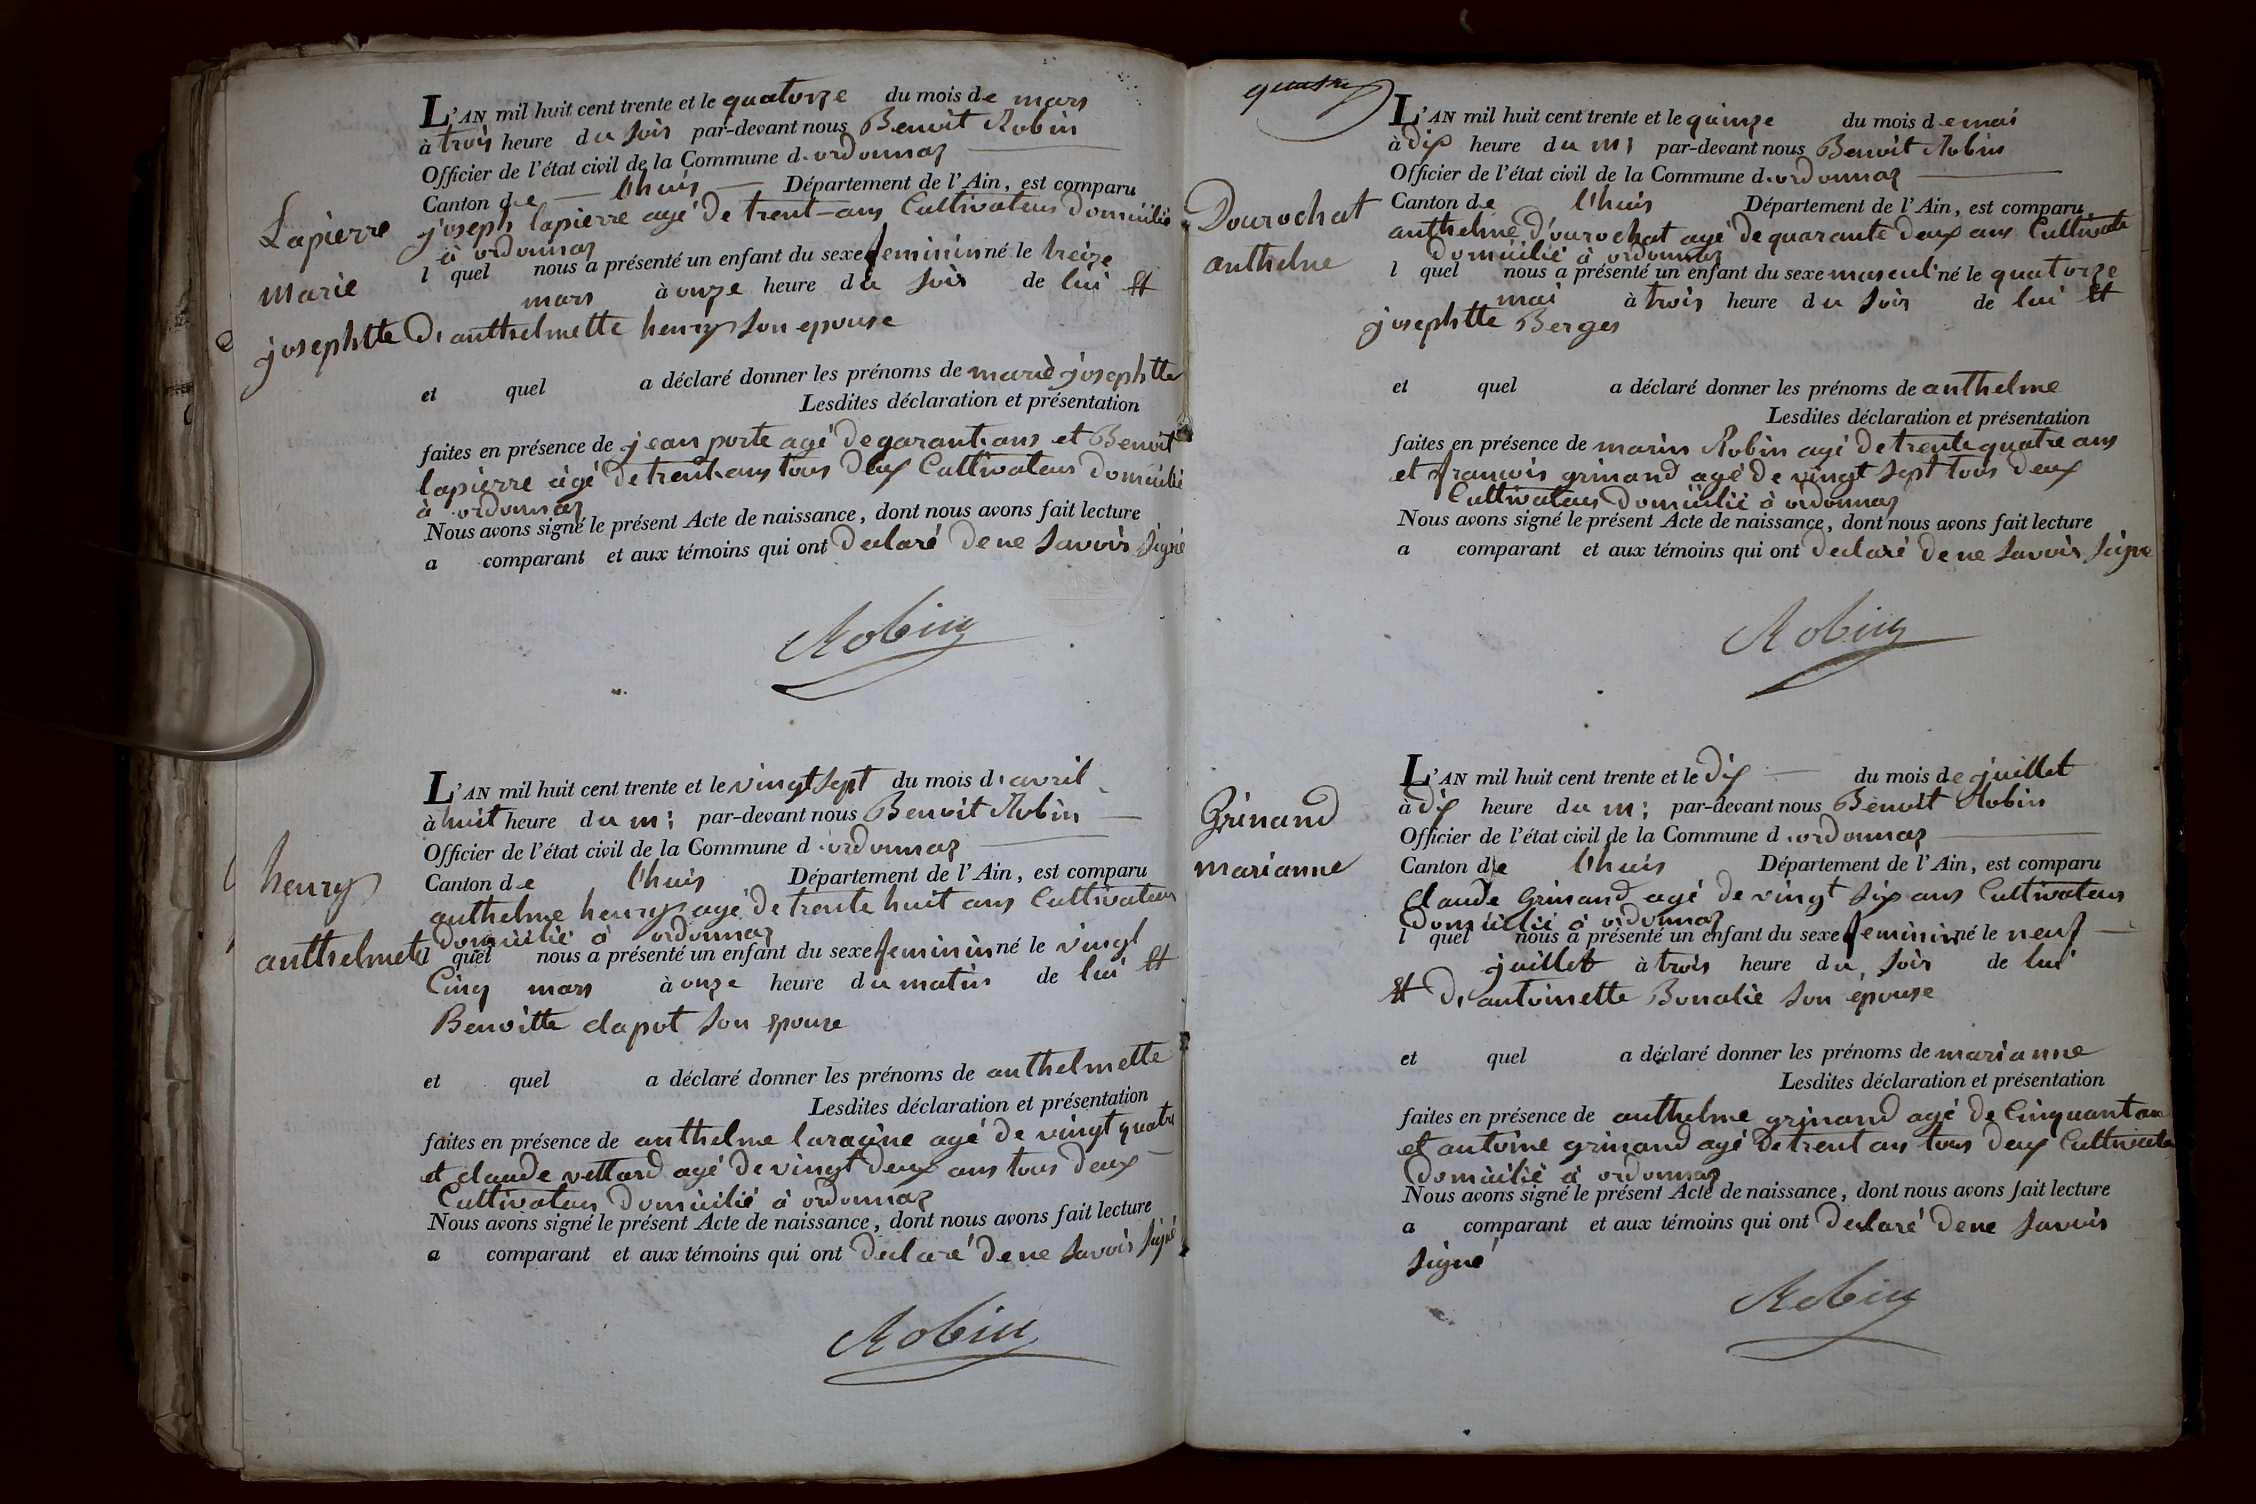 L'AN mil huit cent trente et le quatorze du mois de mars
à trois heure du soir par-devant nous Benoit Robin
Officier de l'état civil de la Commune d. ordonnaz
Canton de l'huis Département de l'Ain, est comparu
Lapierre
joseph lapierre agé de trent-ans Cultivateur domicilié
à ordonnaz
l quel nous a présenté un enfant du sexe feminin né le treize
marie
mars à onze heure du soir de lui et
josephtte
d'anthelmette henry son epouse
et quel a déclaré donner les prénoms de marie josephtte
Lesdites déclaration et présentation
faites en présence de jean porte agé de garant ans et Benoit
lapierre agé de trent ans tous deux Cultivateur domicilié
à ordonnaz
Nous avons signé le présent Acte de naissance, dont nous avons fait lecture
a comparant et aux témoins qui ont declaré de ne savoir signé
Robin
L'AN mil huit cent trente et le vingt sept du mois d'avril
à huit heure du m: par-devant nous Benoit Robin
Officier de l'état civil de la Commune d. ordonnaz
Canton de l'huis Département de l'Ain, est comparu
henry
anthelme henry agé de trente huit ans Cultivateur
domicilié à ordonnaz
anthelmette
l quel nous a présenté un enfant du sexe feminin né le vingt
Cinq mars à onze heure du matin de lui et
Benoitte clapot son epouse
et quel a déclaré donner les prénoms de anthelmette
Lesdites déclaration et présentation
faites en présence de anthelme laracine agé de vingt quatre
et claude vettard agé de vingt deux ans tous deux
Cultivateur domicilié à ordonnaz
Nous avons signé le présent Acte de naissance, dont nous avons fait lecture
a comparant et aux témoins qui ont declaré de ne savoir signé
Robin
quatre
L'AN mil huit cent trente et le quinze du mois de mai
à dix heure du m: par-devant nous Benoit Robin
Officier de l'état civil de la Commune d. ordonnaz
Canton de l'huis Département de l'Ain, est comparu
Dourochat
anthelme d'ourochat agé de quarante deux ans Cultivate
domicilié à ordonnaz
anthelme
l quel nous a présenté un enfant du sexe masculi né le quatorze
mai à trois heure du soir de lui et
josephtte Berges
et quel a déclaré donner les prénoms de anthelme
Lesdites déclaration et présentation
faites en présence de marin Robin agé de trente quatre ans
et francois grinand agé de vingt sept tous deux
Cultivateur domicilié à ordonnaz
Nous avons signé le présent Acte de naissance, dont nous avons fait lecture
a comparant et aux témoins qui ont declaré de ne savoir signe
Robin
L'AN mil huit cent trente et le dix du mois de juillet
à dix heure du m: par-devant nous Benoit Robin
Grinand
Officier de l'état civil de la Commune d. ordonnaz
Canton de l'huis Département de l'Ain, est comparu
marianne
claude Grinand agé de vingt six ans Cultivateur
domicilié à ordonnaz
l quel nous a présenté un enfant du sexe feminin né le neuf
juillet à trois heure du soir de lui
et d'antoinette Bonalie son epouse
et quel a déclaré donner les prénoms de marianne
Lesdites déclaration et présentation
faites en présence de anthelme grinand agé de Cinquant an
et antoine grinand agé de trent ans tous deux Cultivate
domicilié à ordonnaz
Nous avons signé le présent Acte de naissance, dont nous avons fait lecture
a comparant et aux témoins qui ont declaré de ne savoir
signé
Robin